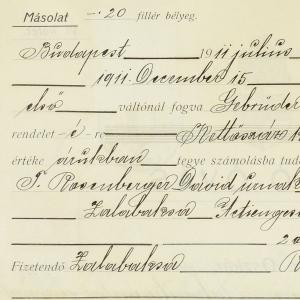 Másolat 20 fillér bélyeg.
Budapest 1911 július
1911. December 15
első váltónál fogva Gebrüder
rendelet-é-re Kettőszáz
értéke árukban tegye számolásba tuda
T. Rosenberger Dávid úrnak
Zalabaksa Actienges
Fizetendő Zalabaksa